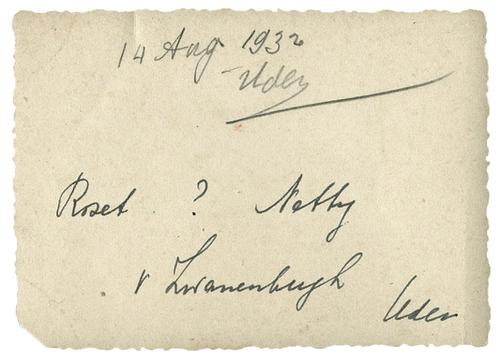 14 Aug 1932
Uden
Roset ? Netty
v Zwanenbergh
Uden